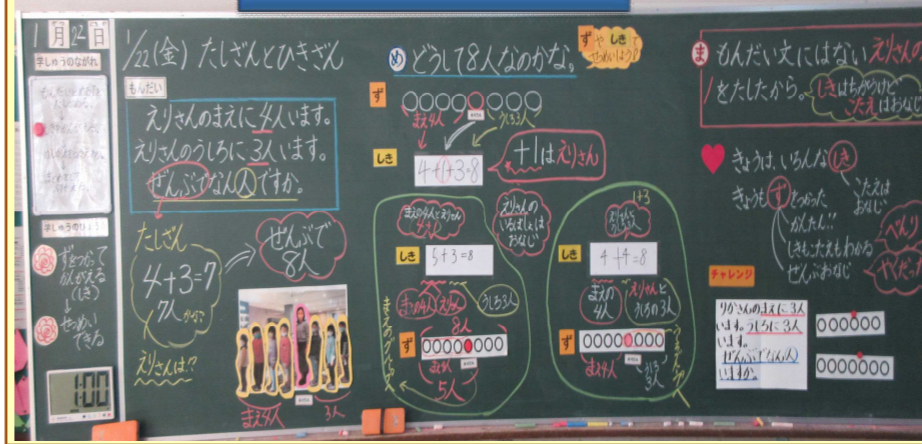 1月22日
学しゅうのながれ
学しゅうのひょうか
ずをつかって
かんがえる
(しき)
↓
せつめい
できる
1:00
1/22(金) たしざんとひきざん
もんだい
えりさんのまえに4人います。
えりさんのうしろに3人います。
ぜんぶでなん人ですか。
たしざん
4+3=7
7人かな?
えりさんは!?
ぜんぶで
8人
まえ4人
3人
め どうして8人なのかな。
ずやしきで
せつめいしよう
ず
まえ4人
うしろ3人
しき
4+1+3=8
+1はえりさん
まえの4人とえりさん
4+1
しき
5+3=8
まえの4人
えりさん
うしろ3人
8人
ず
まえ4人
5人
えりさんの
いるばしょは
おなじ
1+3
えりさんと
うしろ3人
しき
4+4=8
まえの
4人
えりさんと
うしろの3人
ず
まえ4人
うしろ
3人
ま もんだい文にはないえりさんの
1をたしたから。
しきはちがうけど、
こたえはおなじ
きょうは、いろんなしき
こたえは
おなじ
きょうもずをつかった
かんたん!!
しきもこたえもわかる
ぜんぶおなじ
チャレンジ
りかさんのまえに3人
います。うしろに3人
います。
ぜんぶでなん人
いますか。